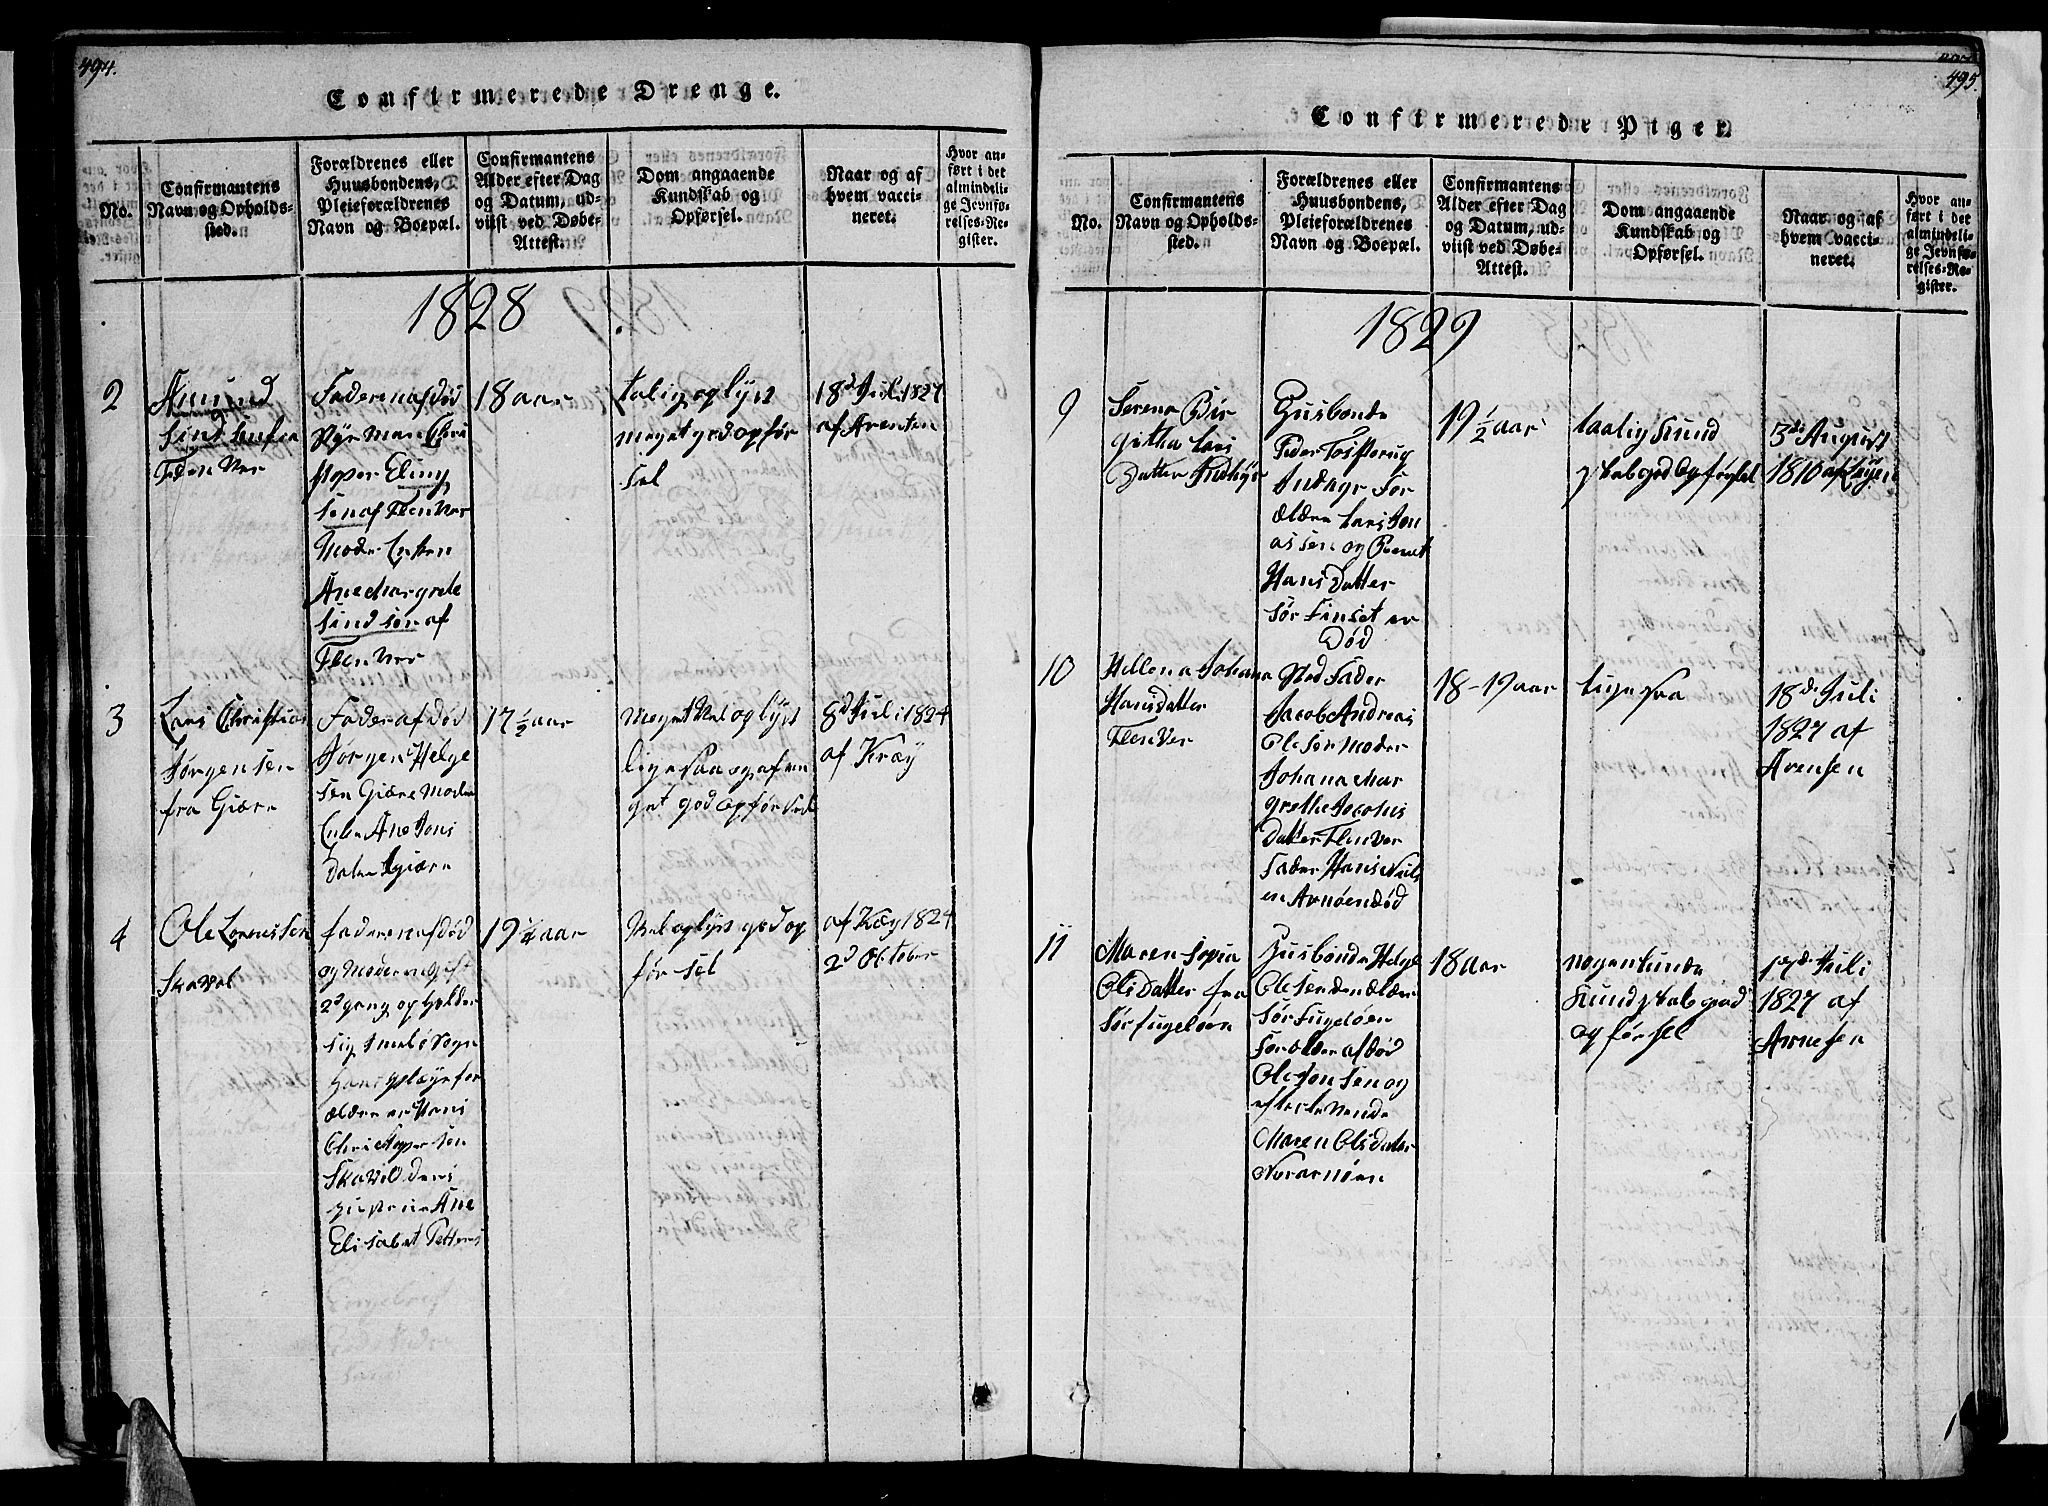 494.
Confirmerede Drenge.
No.
Confirmantens
Navn og Opholds-
sted.
Forældrenes eller
Huusbondens,
Pleieforældrenes
Navn og Boepæl.
Confirmantens
Alder efter Dag
og Datum, ud-
viist ved Døbe-
Attest.
Dom angaaende
Kundskab og
Opførsel.
Naar og af
hvem vacci-
neret.
Hvor an-
ført i det
almindeli-
ge Jevnfø-
relses-Re-
gister.
1828
2
Amund
Sindsen fra
FlenVer
Faderen afdød
Christoper Eling
sen af FlenVer
Moder Enken
Ane Margrete
Sindsen af
FlenVer
18 aar
talig oplyst
meget god opfør
sel
18d Juli 1827
af Arenten
3
Lars Christian
Jørgensen
fra Giære
Fader afdød
Jørgen Helge
sen Giære Moder
Enke Ane Jons
Dater Giære
17 1/2 aar
Meget Vel oplyst
ligesaa og af me
get god opførsel
8d Juli 1824
af Kræy
4
Ole Lorentsen
Skavol
faderen afdød
og Moderen Gift
2d gang og holder
sig Sognn
Hans Pleiefor
ældre er Hans
Christoppersen
Skavol Deris
Ane
Elisabet Petters
19 1/4 aar
Vel oplyst god op
førsel
af Kræy 1824
2d October
495.
Confirmerede Piger.
No.
Confirmantens
Navn og Opholds-
sted.
Forældrenes eller
Huusbondens,
Pleieforældrenes
Navn og Boepæl.
Confirmantens
Alder efter Dag
og Datum, ud-
viist ved Døbe-
Attest.
Dom angaaende
Kundskab og
Opførsel.
Naar og af
hvem vacci-
neret.
Hvor an-
ført i det
almindeli-
ge Jevnfø-
relses-Re-
gister.
1829
9
Serena Bir
githa Lars
Datter Indhyr
Husbonde
Peder Tostterug
Indhyr For
ældre Lars Jon
assen og Berret
Hans Datter
Sør Finset er
Død
19 1/2 aar
taalig Kund
skab god Opførsel
3de August
1810 af
10
Hellena Johana
Hansdatter
FlenVer
Sted Fader
Jacob Andreas
Olesen Moder
Johana Mar
grethe Jacobs
Datter FlenVer
Fader Hans Niels
en Arnøen død
18-19 aar
ligesaa
18de Juli
1827 af
Arensen
11
Maren Sopia
Ols Datter fra
Sør fugeløen
Husbonde Helge
Olesen den ældre
Sør Fugeløen
Forælder afdød
Ole Jonsen og
efterlevende
Maren Olsdater
Nordarnøen
18 aar
nogenlunde
Kundskab god
opførsel
17de Juli
1827 af
Arnesen